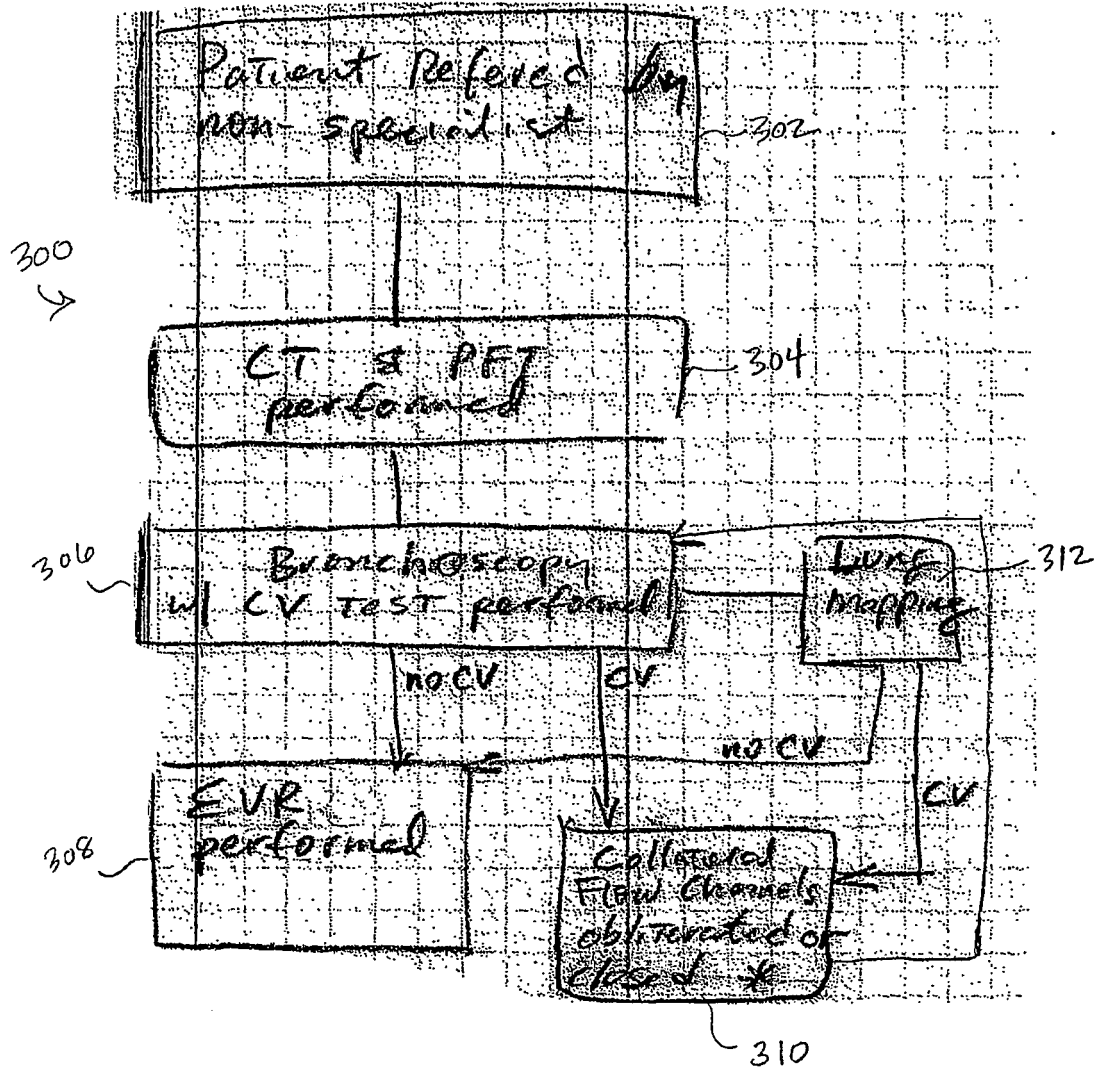 Patient Refered by
non-specialist
302
300
CT & PFT
performed
304
306
Bronchoscopy
w/ CV TEST performed
Lung
Mapping
312
no CV
CV
no CV
CV
EVR
performed
308
Collateral
Flow Channels
obliterated or
closed *
310